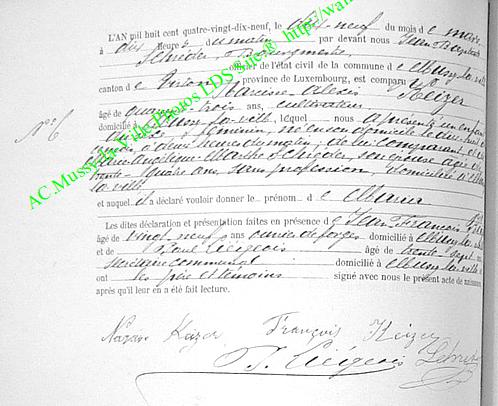 L'AN mil huit cent quatre-vingt-dix-neuf, le dix-neuf du mois de mars
à dix heures du matin par devant nous Jean Baptiste
Schieder, Bourgmestre
officier de l'état civil de la commune de Mussy-la-ville
canton de Virton province de Luxembourg, est comparu
Narcisse Alexis Keizer
âgé de quarante trois ans, cultivateur
domicilié à Mussy-la-ville, lequel nous a présenté un enfant
du sexe féminin, né en son domicile
à deux heures du matin, de lui comparant et de
Marie Angélique Marthe Schieder, son épouse, âgée de
trente-quatre ans, sans profession, domiciliée à Mussy
la ville
et auquel il a déclaré vouloir donner le prénom de Maria
Les dites déclaration et présentation faites en présence de Jean François
âgé de vingt neuf ans domicilié à Mussy-la-ville
et de Paul Liégeois âgé de trente-sept ans
secrétaire communal domicilié à Mussy-la-ville
ont les père et témoins signé avec nous le présent acte de naissance
après qu'il leur en a été fait lecture.
N° 6
Keizer François Keizer
P. Liégeois
AC.Mussy-la-Ville-Photos LDS ®ules® http://wa